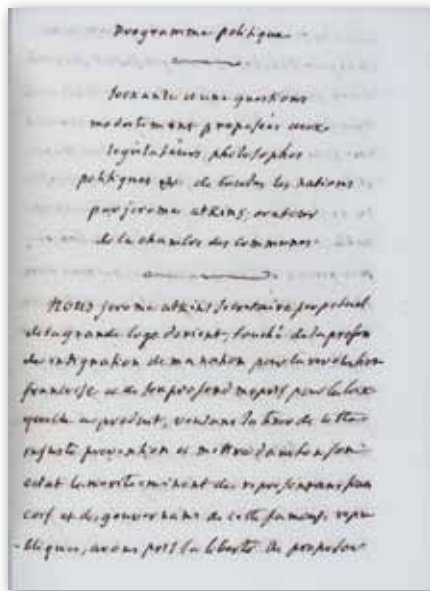 Programme politique
Soixante et une questions
modestement proposées aux
législateurs, philosophes
politiques &c. de toutes les nations
par jerome atkins, orateur
de la chambre des communes.
Nous jerome atkins secretaire perpetuel
de la grande loge d'orient, touché de la profon
de indignation de ma nation pour la revolution
françoise, et de son profond mepris pour les loix
qu'elle a produit, voulant la tirer de cette
injuste prevention et mettre dans tout son
eclat le merite eminent des representans fran
cois et des gouvernans de cette fameuse repu
-blique, avons pris la liberté de proposer